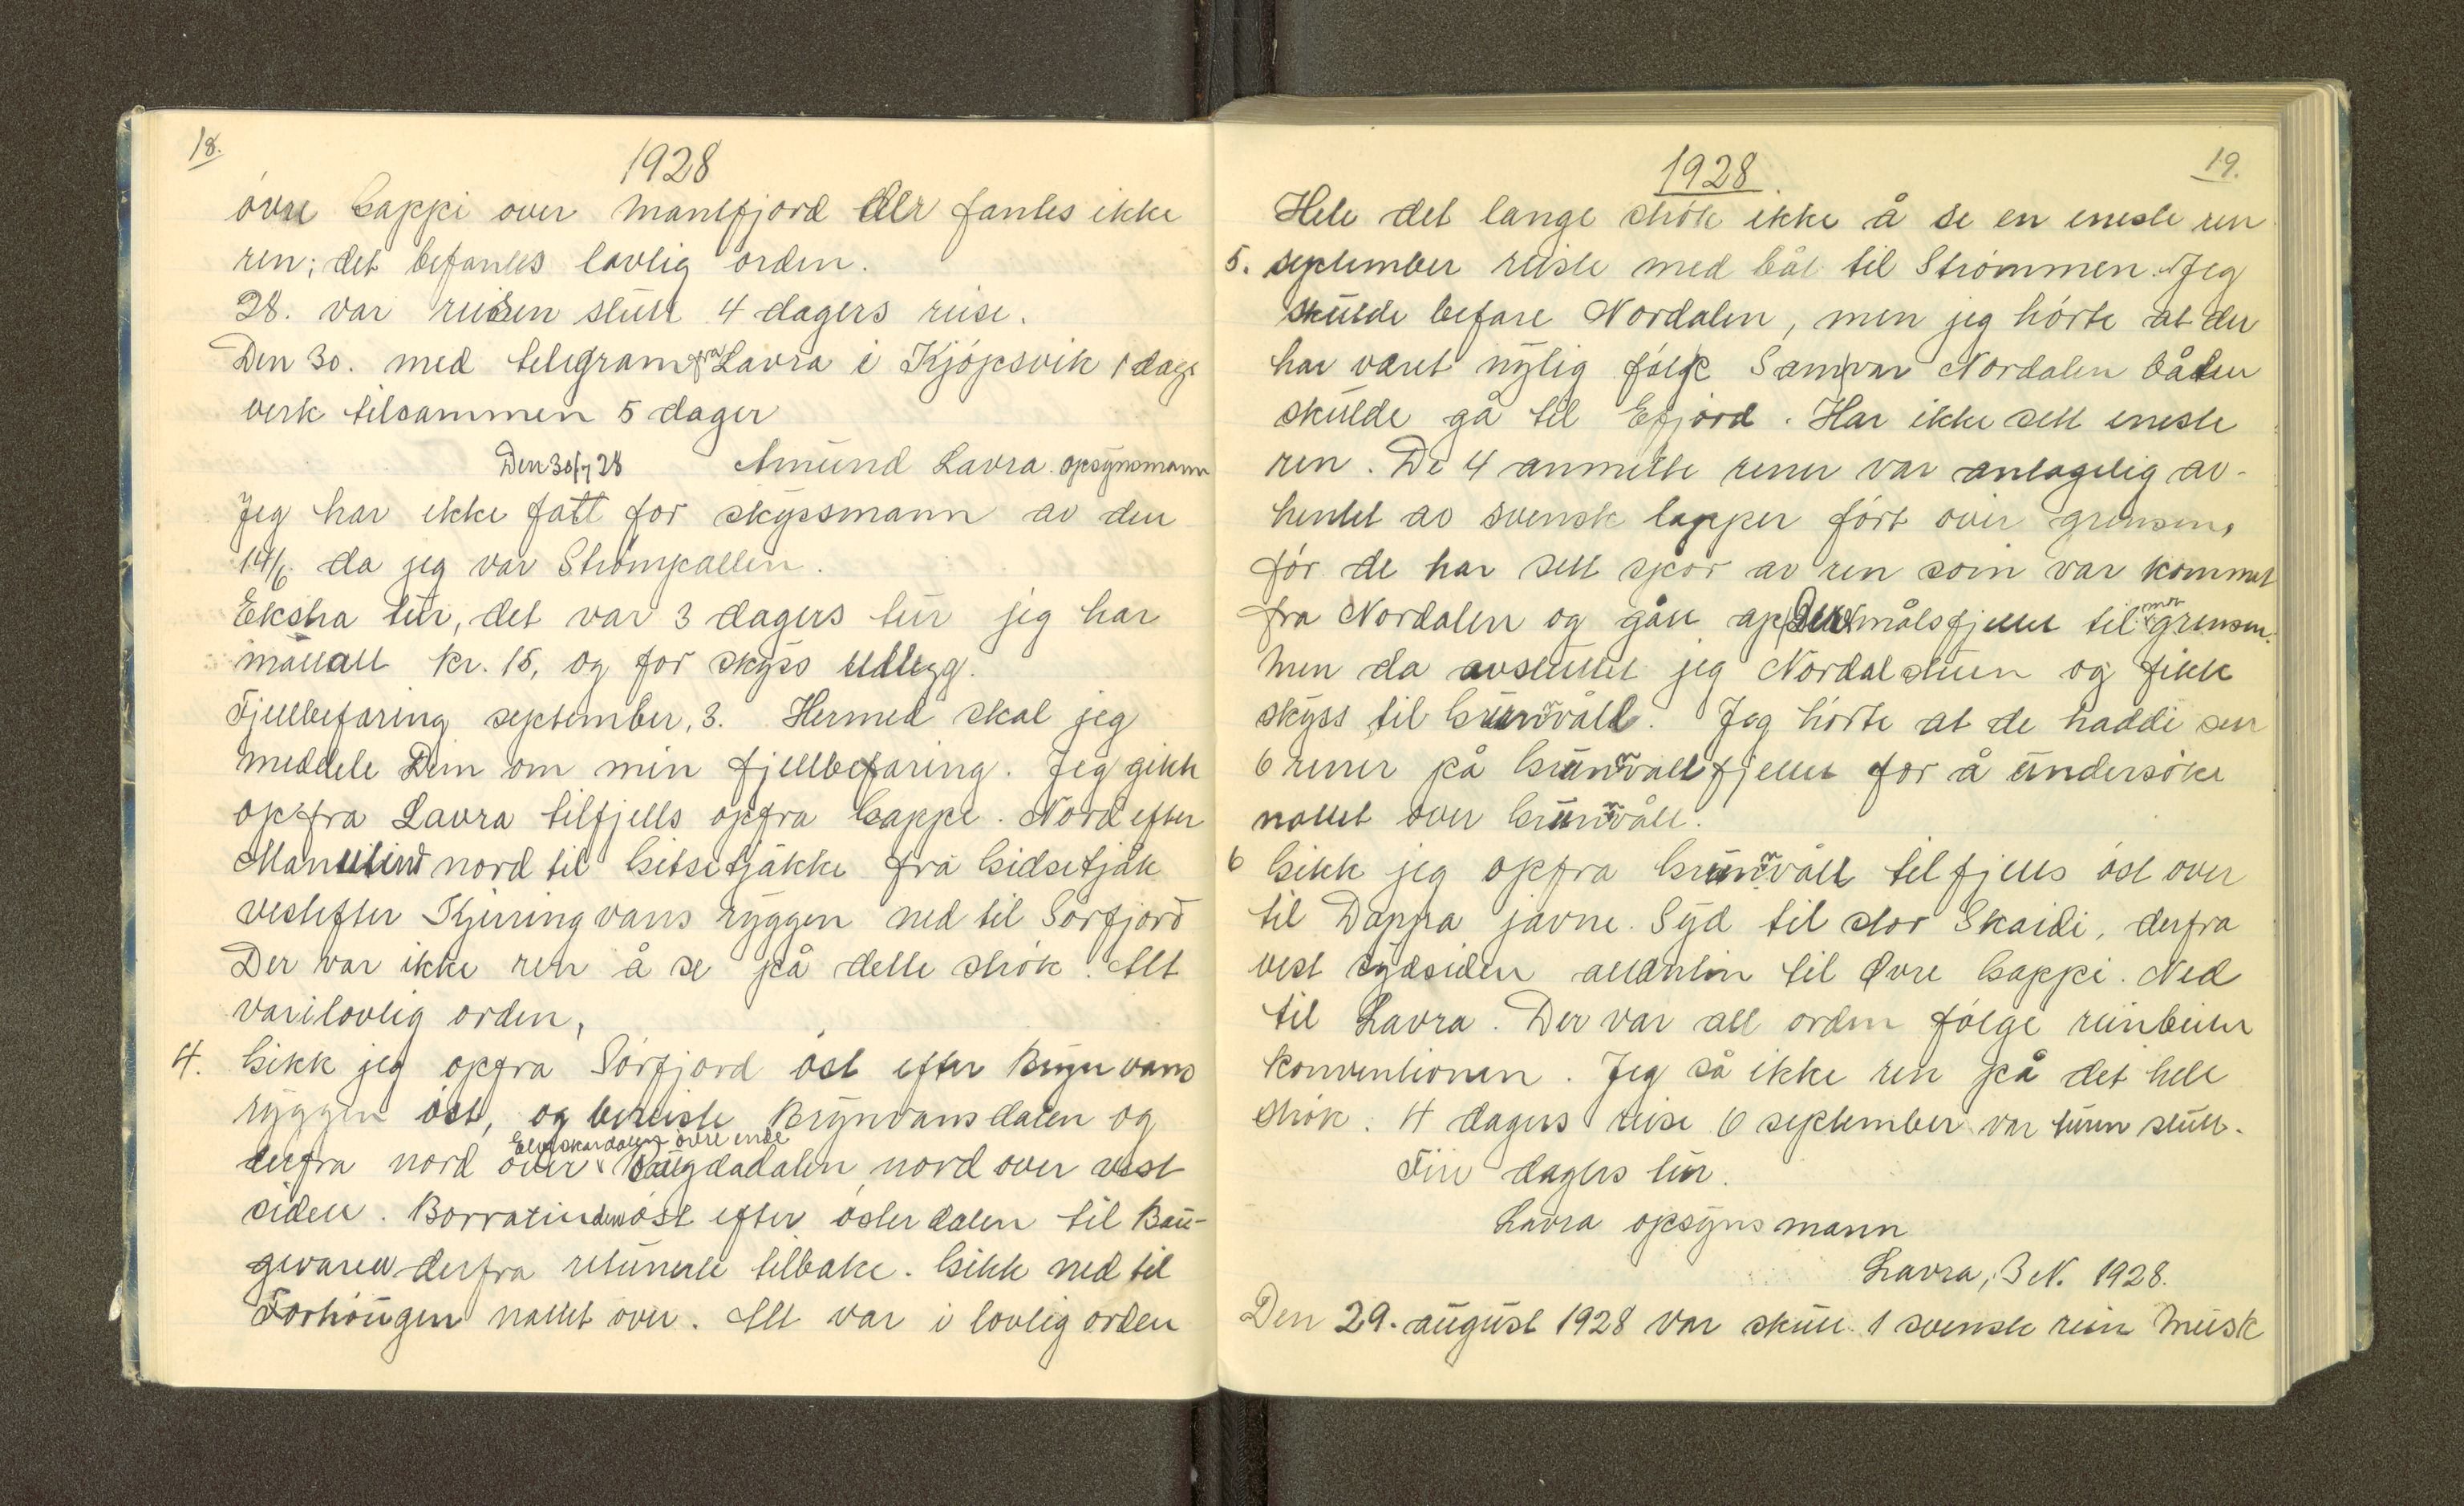 18.
1928
övre Gappi over Manlfjord der fantes ikke
ren; det befantes lovlig orden.
28. var reisen slutt 4 dagers reise.
Den 30. med telegram fra Lavra i Kjöpsvik 1 dags
verk tilsammen 5 dager
Den 30/7 28 Amund Lavra opsynsmann
Jeg har ikke fått for skyssmann av den
14/6 da jeg var Strömpallen.
Ekstra tur, det var 3 dagers tur jeg har
mottatt kr. 15, og for skyss utlegg.
Fjellbefaring september, 3. Hermed skal jeg
meddele Dem om min fjellbefaring. Jeg gikk
opfra Lavra tilfjells opfra Gappe. Nord efter
Manntind nord til Gitsetjåkke fra Gidsetjåk
vestefter Kjerringvans ryggen ned til Sörfjord
Der var ikke ren å se på dette strök. Alt
var i lovlig orden,
4. Gikk jeg opfra Sörfjord öst efter Brynvans
ryggen öst, og bereiste Brynvansdalen og
Elvaskardalen övre ende
derfra nord over Baugdadalen nord over vest
siden. Borratinden öst efter österdalen til Bau-
gevaren derfra retunerte tilbake. Gikk ned til
Forhaugen nattet over. Alt var i lovlig orden
1928.
19.
Hele det lange strök ikke å se en eneste ren
5. september reiste med båt til Strömmen. Jeg
skulde befare Nordalen, men jeg hörte at der
har været nylig folk Sam var Nordalen båten
skulde gå til Efjord. Har ikke sett eneste
ren. De 4 anmelte rener var antagelig av-
hentet av svensk lapper fört over grensen,
för de har sett spor av ren som var kommet
fra Nordalen og gått op målsfjellet til mot grensen.
Men da avsluttet jeg Nordalsturen og fikk
skyss til Grunvåll. Jeg hörte at de hadde sen
6 rener på Grunvåll fjellet for å undersöke
nattet over Grunvåll.
6 Gikk jeg opfra Grunvåll tilfjells öst over
til Dappa javne. Syd til stor Skaidi, derfra
vest sydsiden til Øvre Gappi. Ned
til Lavra. Der var alt orden fölge reinbeite
konventionen. Jeg så ikke ren på det hele
strök. 4 dagers reise 6 september var turen slutt.
Fire dagers tur.
Lavra opsyns mann
Lavra, 3 N. 1928.
Den 29. august 1928 var skutt 1 svensk rein Musk